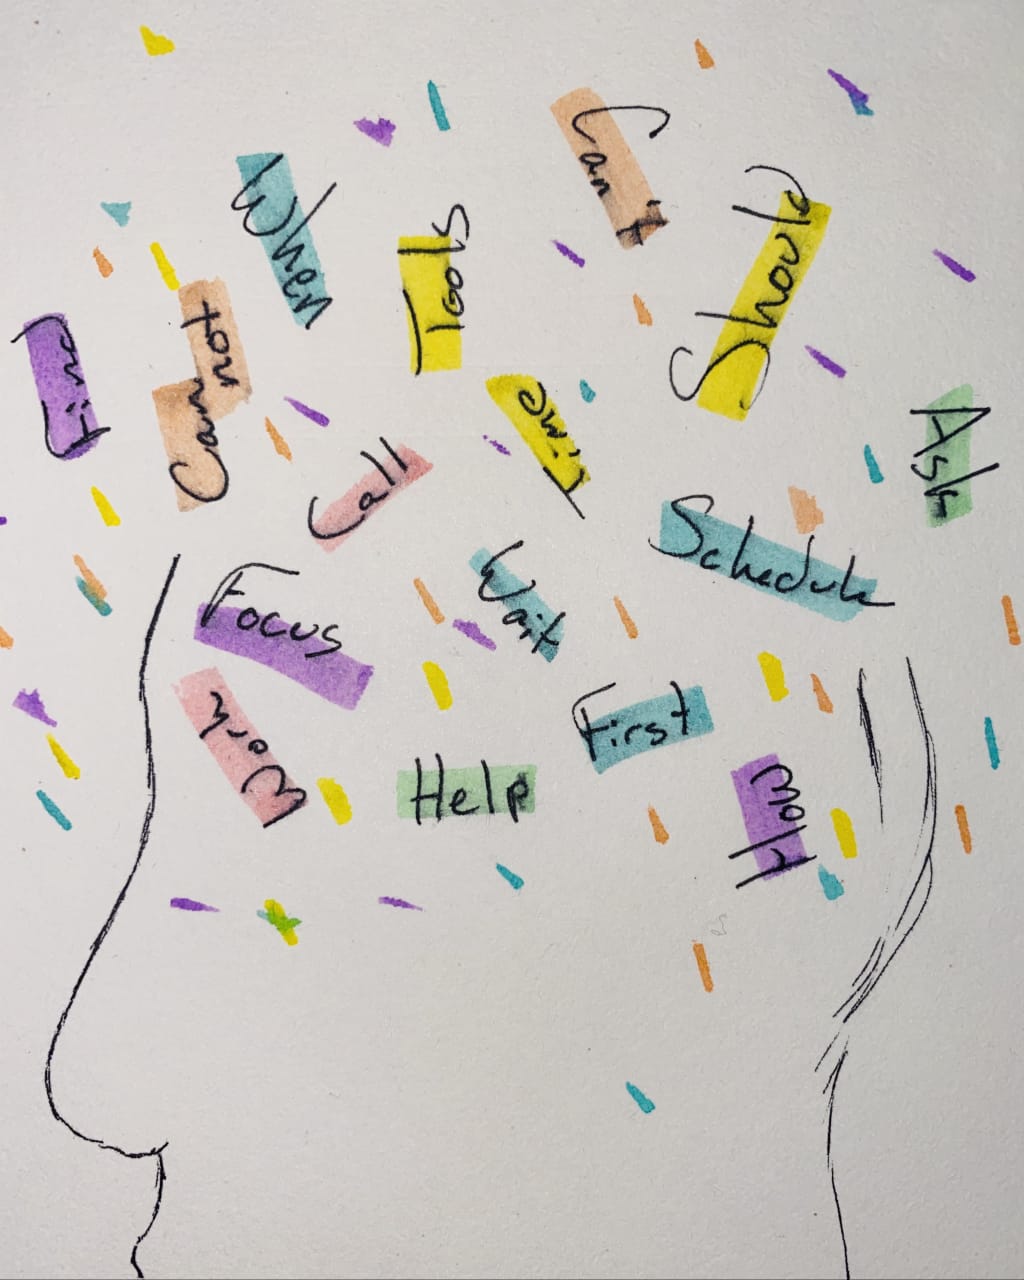 Can't
When
Tools
Should
Find
Can
not
Time
Ask
Call
Schedule
Wait
Focus
Work
First
Help
How